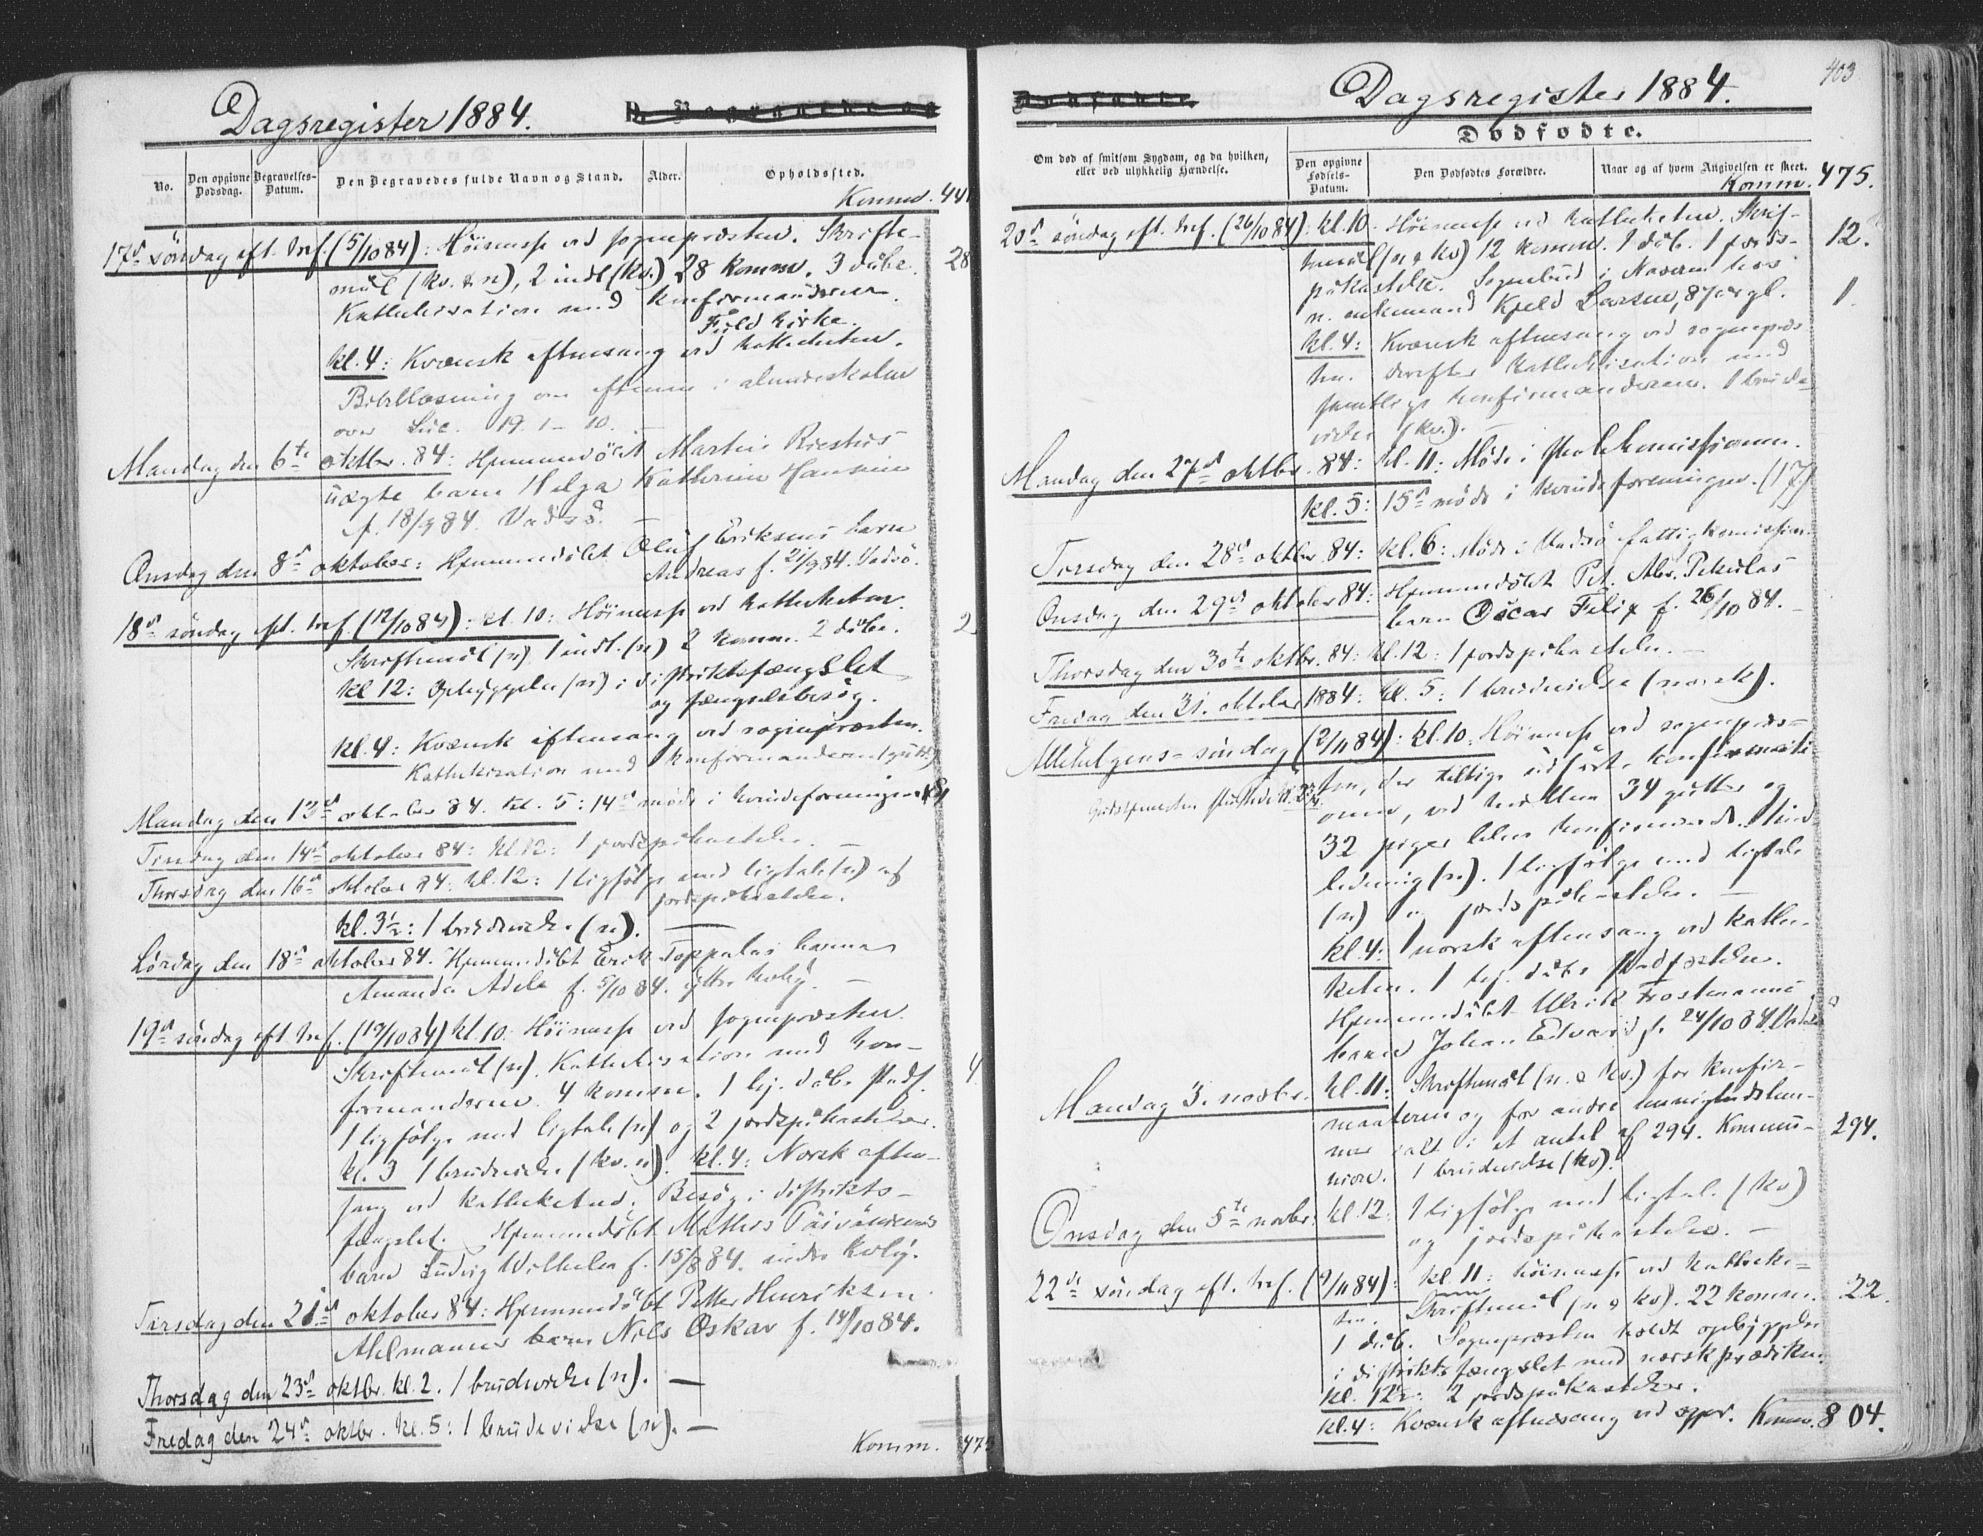 Dagsregister 1884.
No.
Den opgivne Dødsdag.
Begravelses-Datum.
Den Begravedes fulde Navn og Stand.
Alder.
Opholdssted.
Komm. 441
17d søndag eft. tref. (5/10 84): Høimesse ved sognepresten. Skrifte-
mål (kv. & n), 2 indl (kv.) 28 komm. 3 dåbe. 28
Kathekisation med konfirmanderne.
Fuld kirke.
kl. 4: Kvænsk aftensang ved katheketen.
Bibellæsning om aftenen i almueskolen
over Luc. 19. 1-10.
Mandag den 6te oktbr. 84: Hjemmedøbt Martin
uægte barn Helga Kathrine Hansine
f. 18/9 84. Vadsö.
Onsdag den 8d oktober: Hjemmedöbt Oluf Eriksens barn
Andreas f. 21/9 84. Vadsö.
18d søndag eft. tref. (12/10 84): kl. 10: Höimesse ved katheketen.
Skriftemål (n) 1 indl. (n) 2 komm. 2 dåbe. 2
kl 12: Opbyggelse (n) i distriktsfængslet
og fængselsbesøg.
kl. 4: Kvænsk aftensang ved sognepræsten.
Kathekisation med konfirmanderne (gutt.)
Mandag den 13d oktober 84. kl. 5: 14d møde i kvindeforeningen
Tirsdag den 14d oktober 84: kl. 12: 1 jordspåkastelse.
Thorsdag den 16d oktober 84: kl. 12: 1 ligfølge med ligtale (n) og
jordspåkastelse.
kl. 3½: 1 brudevielse (n).
Lørdag den 18d oktober 84. Hjemmedöbt Erik Toppalas barn
Amanda Adele f. 5/10 84. ytre kolbg.
19d søndag eft. tref. (19/10 84) kl 10: Höimesse ved sognepræsten.
Skriftemål (n). Kathekisation med kon-
firmanderne. 4 komm. 1 hj. dåbs stadf. 4
1 ligfølge med ligtale (n) og 2 jordspåkastelser.
kl. 3 1 brudevielse (kv. n). kl. 4: Norsk aften-
sang ved katheketen. Besøg i distrikts-
fængslet. Hjemmedöbt Mathis
barn Ludvig Wilhelm f. 15/8 84. indre kolbg.
Tirsdag den 21d oktober 84: Hjemmedöbt Petter Henriksen
Ahlmanns barn Nils Oskar f. 14/10 84.
Thorsdag den 23d oktbr. kl. 2. 1 brudevielse (n). —
Fredag den 24d oktbr. kl. 5: 1 brudevielse (n). —
Komm. 475
403
Dagsregister 1884.
Dødfødte.
Om død af smitsom Sygdom, og da hvilken, eller ved ulykkelig Hændelse.
Den opgivne Fødsels-Datum.
Den Dødfødtes Forældre.
Naar og af hvem Angivelsen er skeet.
Komm. 475.
20d søndag eft. tref. (26/10 84): kl. 10. Höimesse ved katheketen. Skrif-
temål (n & kv) 12 komm. 1 dåb. 1 jords- 12.
påkastelse. Sognebud i hos
n. enkemand Kjeld Larsen, 87 år gl. 1
kl. 4: Kvænsk aftensang ved sogneprես-
ten. Derefter kathekisation med
samtlige konfirmanderne. 1 brude-
vielse (kv.).
Mandag den 27d oktbr. 84: kl. 11: Møde i skolekomissionen.
kl. 5: 15d møde i kvindeforeningen. (17)
Tirsdag den 28d oktbr. 84: kl. 6: Møde i Vadsö fattigkomission
Onsdag den 29d oktober 84: Hjemmedöbt Pet. Abr. Pekulas
barn Oscar Felix f. 26/10 84.
Thorsdag den 30te oktbr. 84: kl. 12: 1 jordspåkastelse. —
Fredag den 31. oktober 1884: kl. 5: 1 brudevielse (norsk).
Allehelgens-søndag (2/11 84): kl. 10: Höimesse ved sognepræs-
ten, der tillige udførte konfirmati-
onen, ved hvilken 34 gutter og
32 piger blev konfirmerede. Ind
ledning (n). 1 ligfølge med ligtale
(n) og jordspåkastelse. —
kl. 4: norsk aftensang ved kathe-
keten. 1 hj. dåbs stadfæstelse.
Hjemmedöbt Ulrik Frostmanns
barn Johan Edvard f. 24/10 84. Vadsö
Mandag 3. novbr. kl. 11: Skriftemål (n. & kv.) for konfir-
manterne og for andre menighedslem-
mer ialt i et antal af 294. Kommu- 294.
nion. 1 brudevielse (kv).
Onsdag den 5te novbr. kl. 12: 1 ligfølge med ligtale (kv)
og jordspåkastelse. —
22de søndag eft. tref. (9/11 84): kl. 11: höimesse ved katheke-
ten. Skriftemål (n & kv). 22 komm. 22.
1 dåb. Sognepræsten holdt opbyggelse
i distriktsfængslet med norsk prædiken.
kl. 12½: 2 jordspåkastelser.
kl. 4: Kvænsk aftensang ved sgpr. Komm. 804.